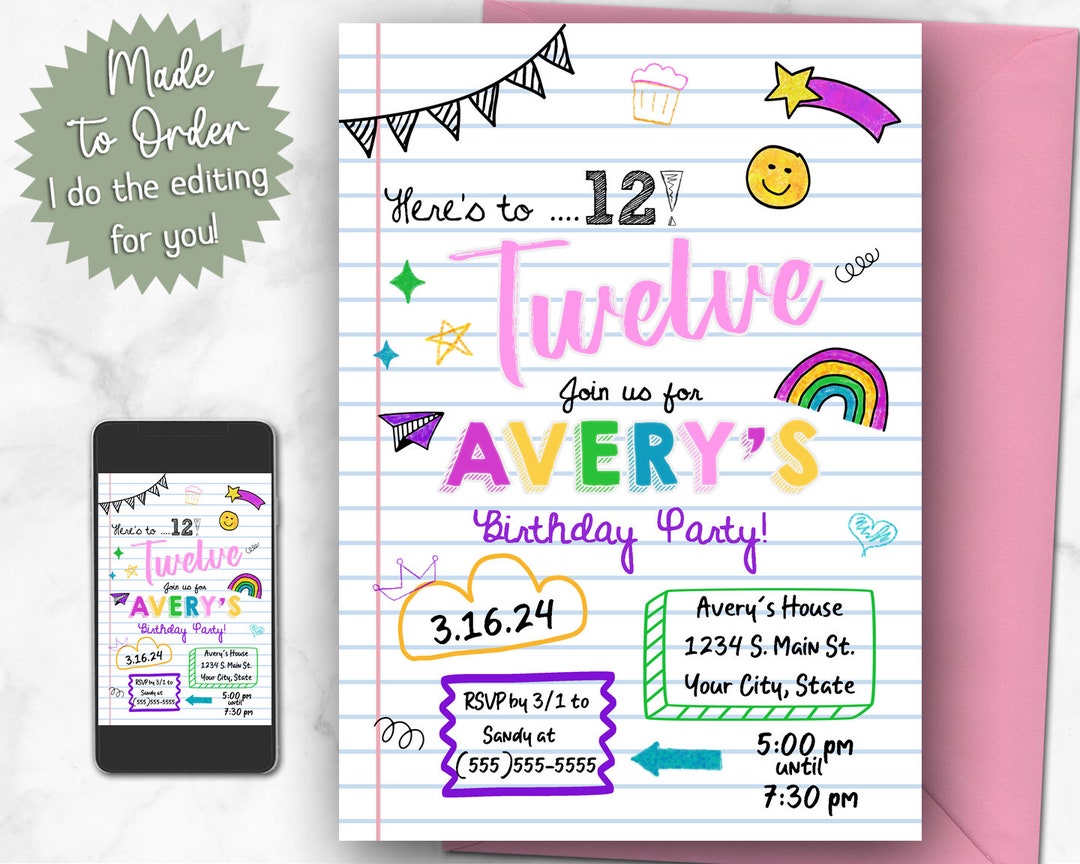 Made
to Order
I do the editing
for you!
Here's to ....12!
Twelve
Join us for
AVERY'S
Birthday Party!
3.16.24
Avery's House
1234 S. Main St.
Your City, State
RSVP by 3/1 to
Sandy at
(555)555-5555
5:00 pm
until
7:30 pm
Here's to ....12!
Twelve
Join us for
AVERY'S
Birthday Party!
3.16.24
Avery's House
1234 S. Main St.
Your City, State
RSVP by 3/1 to
Sandy at
(555)555-5555
5:00 pm
until
7:30 pm